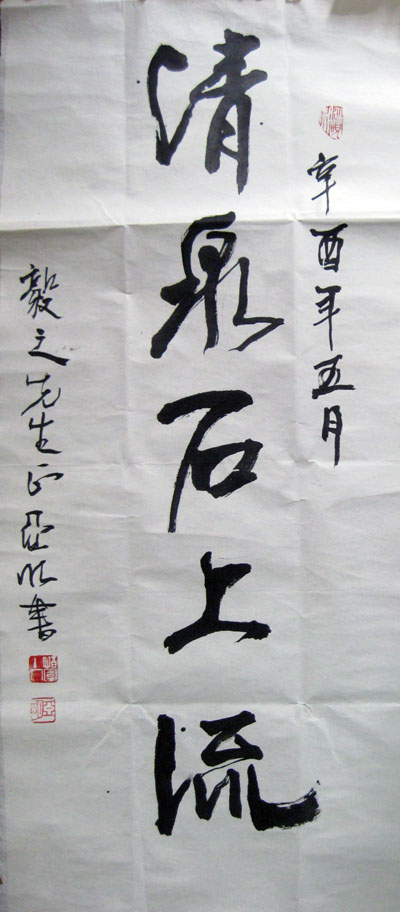 辛酉年五月
清泉石上流
毅之先生正亚明书